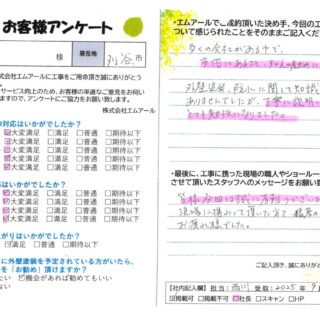 お客様アンケート
様
居在地
刈谷市
株式会社エムアールに工事をご用命頂き誠にありがとう
サービス向上のため、お客様の率直なご意見をお伺い
ますので、アンケートにご協力をお願い致します。
株式会社エムアール
の対応はいかがでしたか?
大変満足 □ 満足 □ 普通 □ 期待以下
大変満足 □ 満足 □ 普通 □ 期待以下
大変満足 □ 満足 □ 普通 □ 期待以下
大変満足 □ 満足 □ 普通 □ 期待以下
はいかがでしたか?
大変満足 □ 満足 □ 普通 □ 期待以下
大変満足 □ 満足 □ 普通 □ 期待以下
大変満足 □ 満足 □ 普通 □ 期待以下
がりはいかがでしたか?
□ 満足 □ 普通 □ 期待以下
に外壁塗装を予定されている方がいたら、
を「お勧め」頂けますか?
たい 機会があれば勧めてもいい
い
・エムアールでご成約頂いた決め手、今回の工
ついて感じられたことをそのままご記入くだ
多くの会社がある中で、
市内にあること、
外壁塗装、防水に関して知識
ありませんでしたが、丁寧に説明
とても勉強になりました。
・最後に、工事に携った現場の職人やショールー
させて頂いたスタッフへのメッセージをお願い
皆様今回は誠に有難うございま
現場に携わって頂いた方々
お疲れ様でした。
ご記入頂き、誠にありがとう
【社内記入欄】 担当:西川 受取:2025年9月
掲載可 □掲載不可 社長 □スキャン □HP